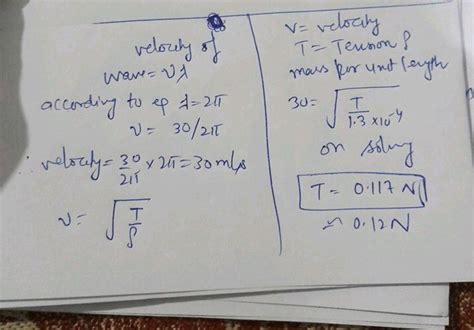 velocity of
wave = νλ
according to eq λ = 2π
ν = 30/2π
velocity = 30/2π × 2π = 30 m/s
v = √(T/ρ)
v = velocity
T = Tension ρ
mass per unit length
30 = √(T/1.3 × 10⁻⁴)
on solving
T = 0.117 N
≈ 0.12 N